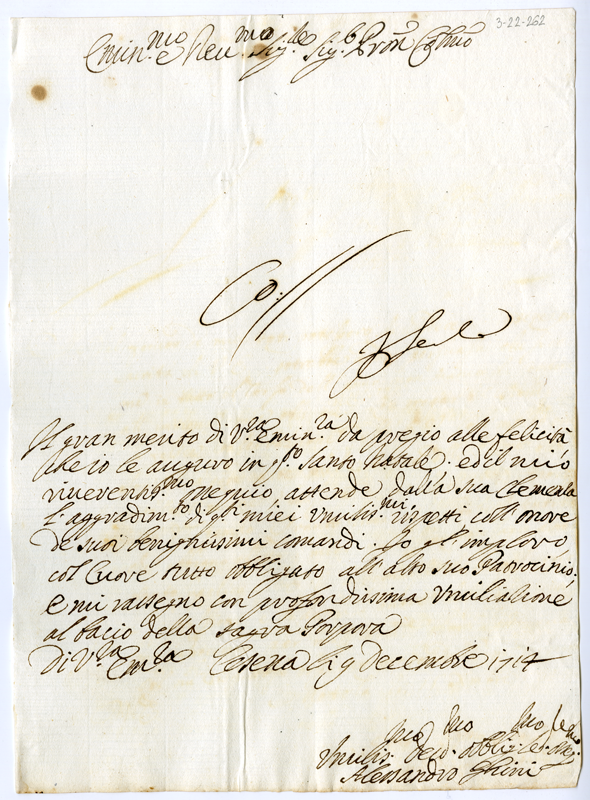 3-22-262
Emin.mo e Reu.mo Sig.re Sig.r Pron Colmo
Il gran merito di V.ra Emin.za da pregio alle felicità
che io le auguro in q.to Santo Natale. ed il mio
riuerentis.mo ossequio attende dalla sua Clemenza
l'aggradim.to di q.ti miei vmilis.mi rispetti coll'onore
de suoi benignissimi comandi. Io gl'imploro
col Cuore tutto obbligato all'alto suo Padrocinio.
e mi rassegno con profondissima vmiliazione
al bacio della sagra Porpora
Di V.ra Em.za Cesena li 9 Decembre 1717
Vmilis.mo Deu.mo Obblig.mo
Alessandro Ghini